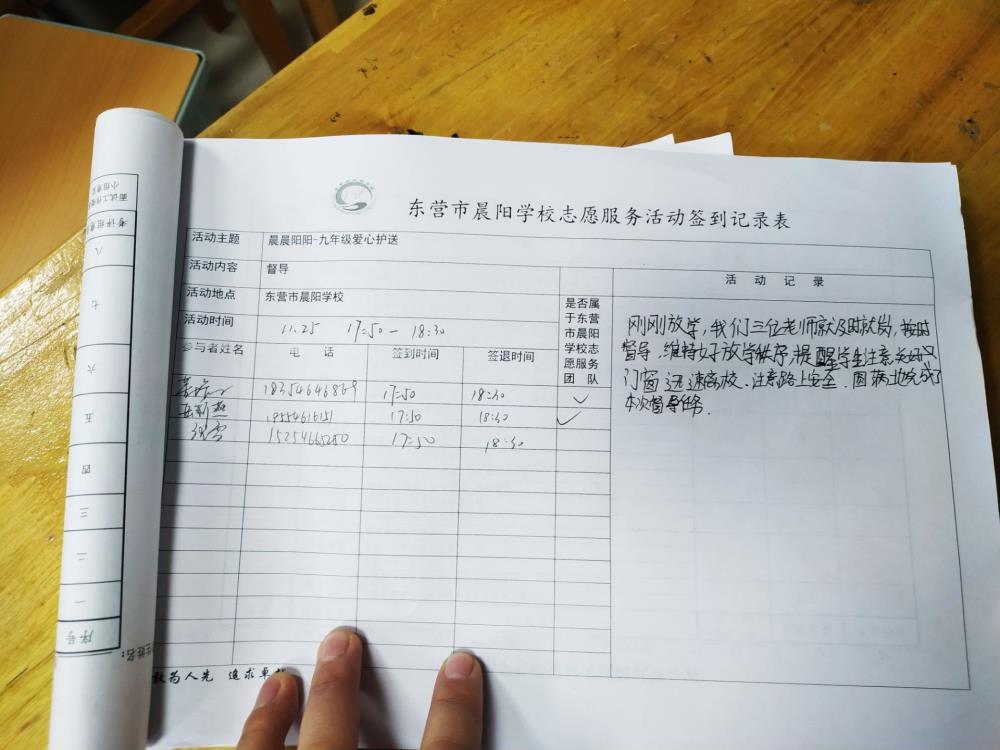 东营市晨阳学校志愿服务活动签到记录表
活动主题 晨晨阳阳-九年级爱心护送
活动内容 督导
活动地点 东营市晨阳学校
活动时间 11.25 17:50 - 18:30
是否属于东营市晨阳学校志愿服务团队
活动记录
参与者姓名 电话 签到时间 签退时间
18354646869 17:50 18:30 ✓
17:50 18:30 ✓
15254665280 17:50 18:30
刚刚放学,我们三位老师就及时就岗,按时
督导,维持好放学秩序,提醒学生注意关好
门窗 迅速离校.注意路上安全.圆满地完成了
本次督导任务.
敢为人先 追求卓
面试工作
小组意见
考评组意见
八
七
六
五
四
三
二
一
序号
姓名: